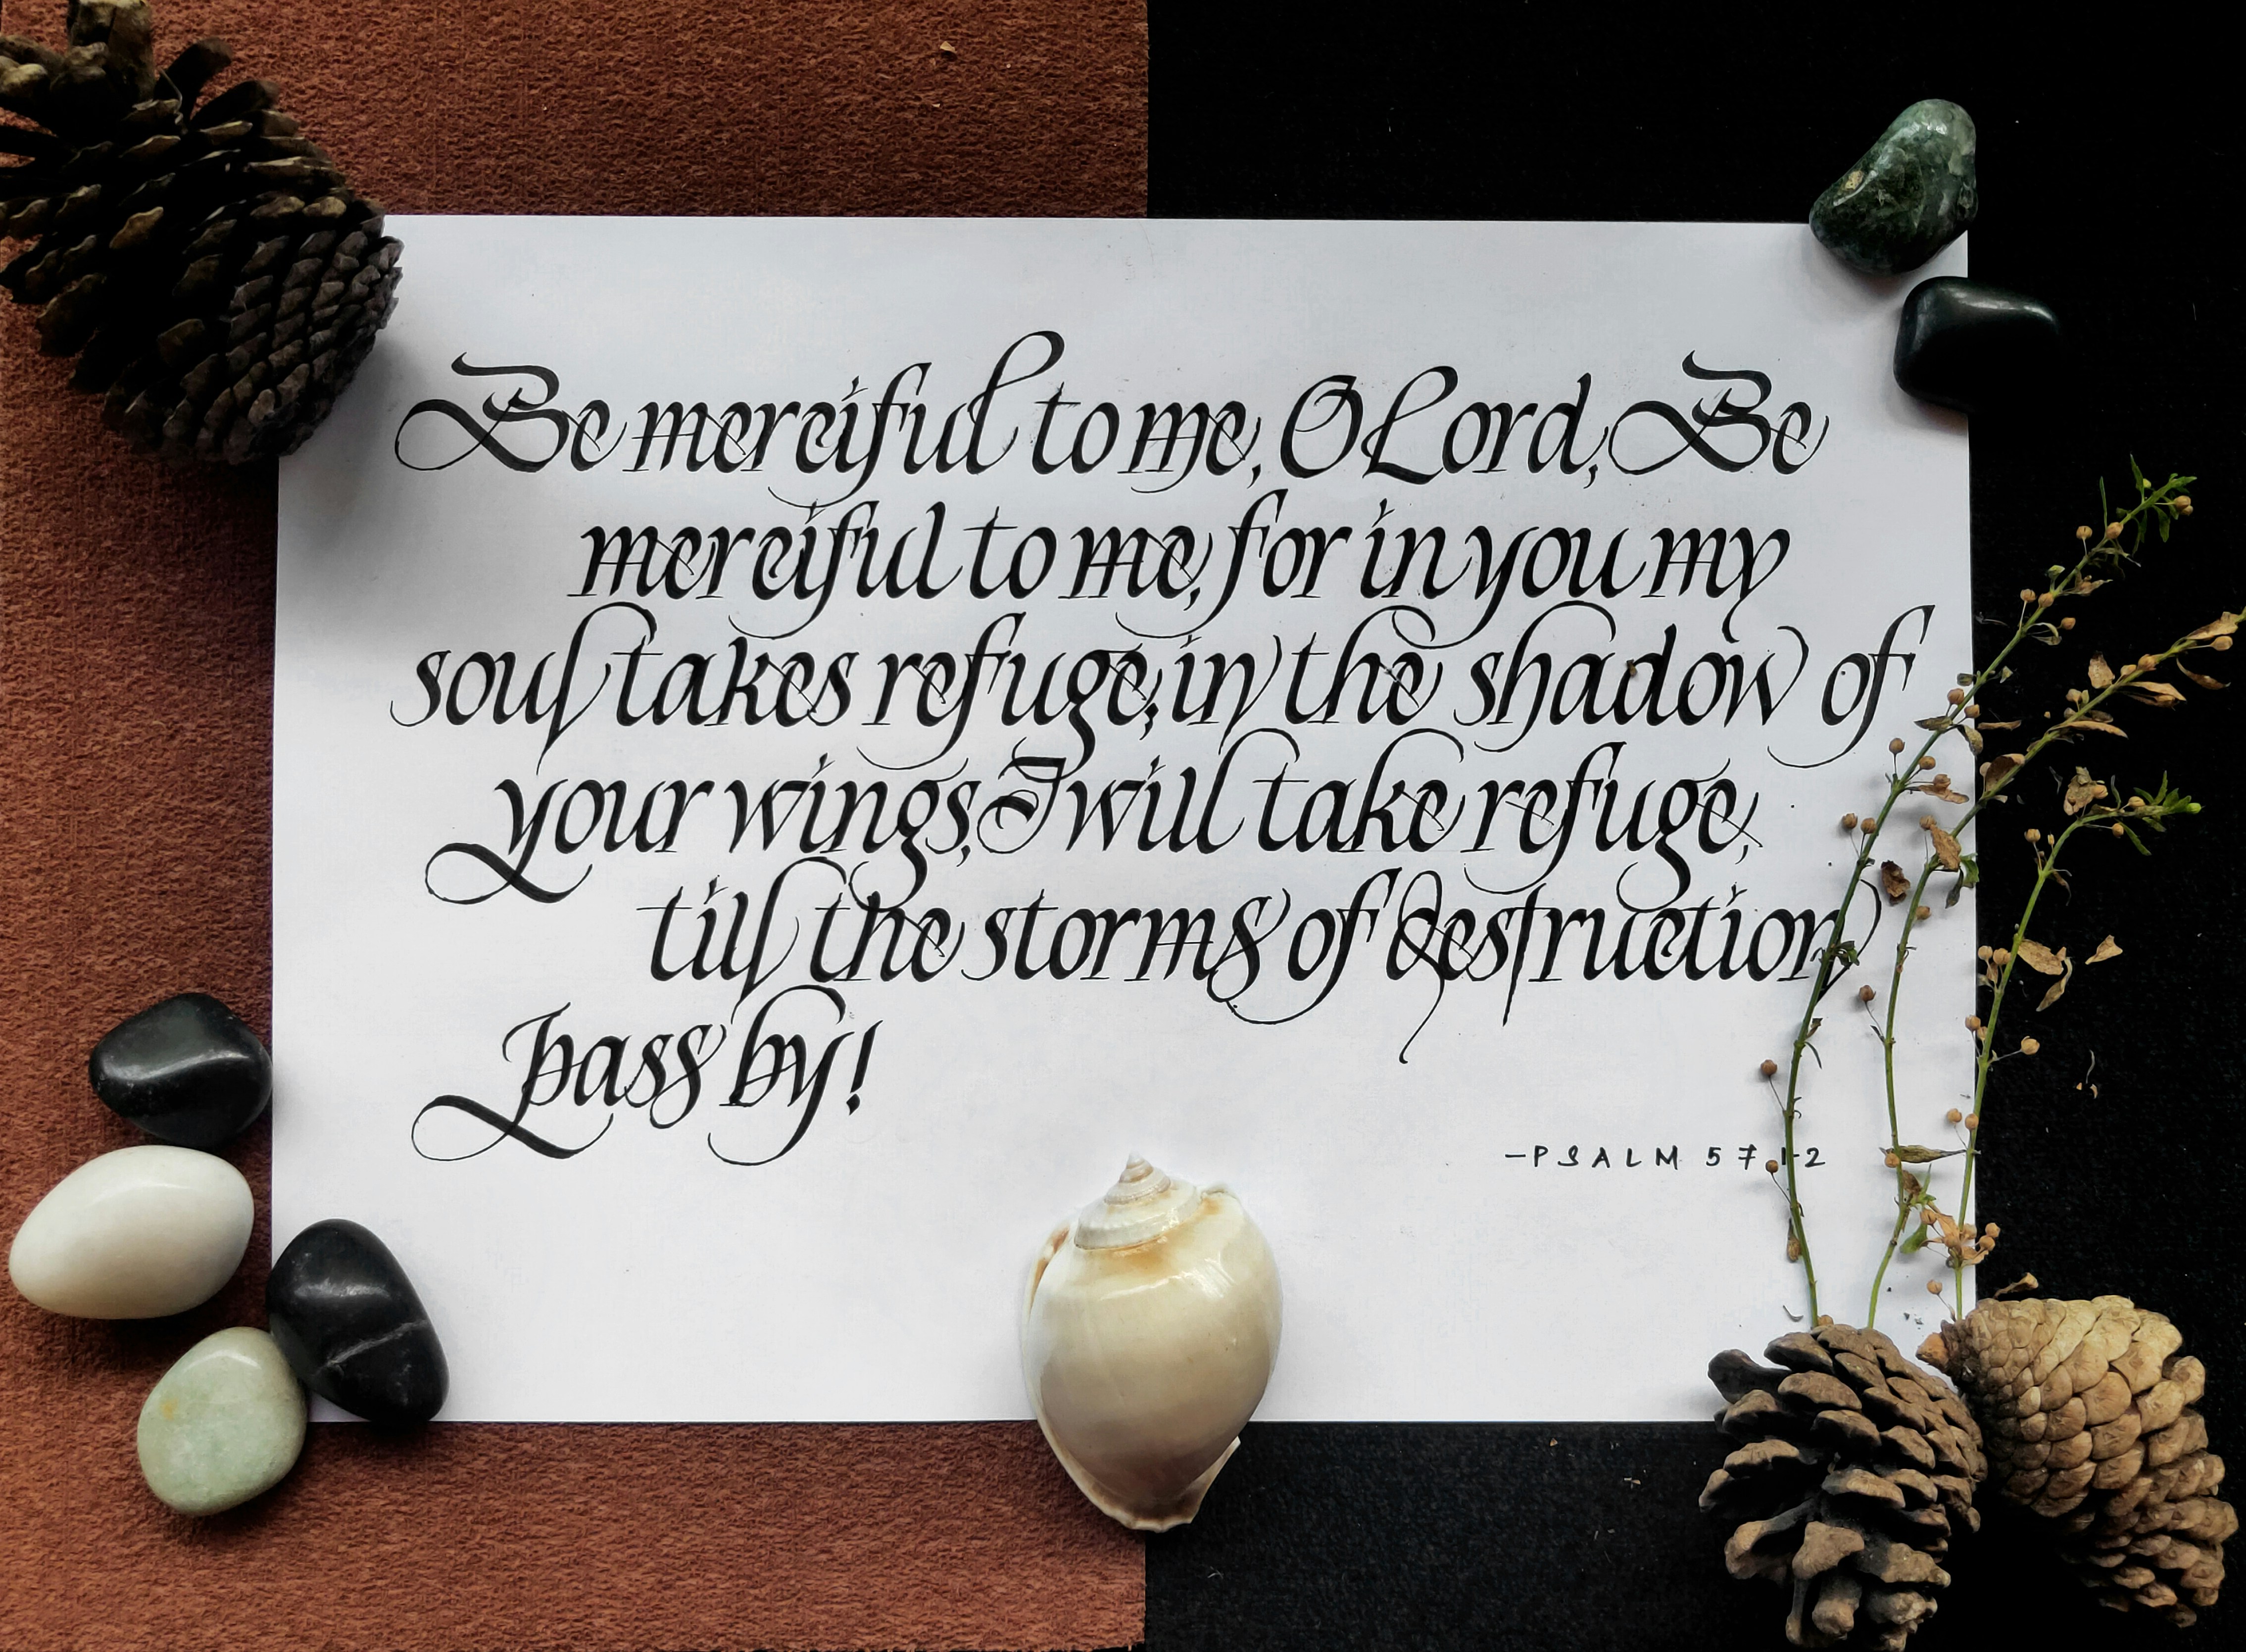 Be merciful to me, O Lord, Be
merciful to me, for in you my
soul takes refuge; in the shadow of
your wings, I will take refuge,
till the storms of destruction
pass by!
–PSALM 57:1-2